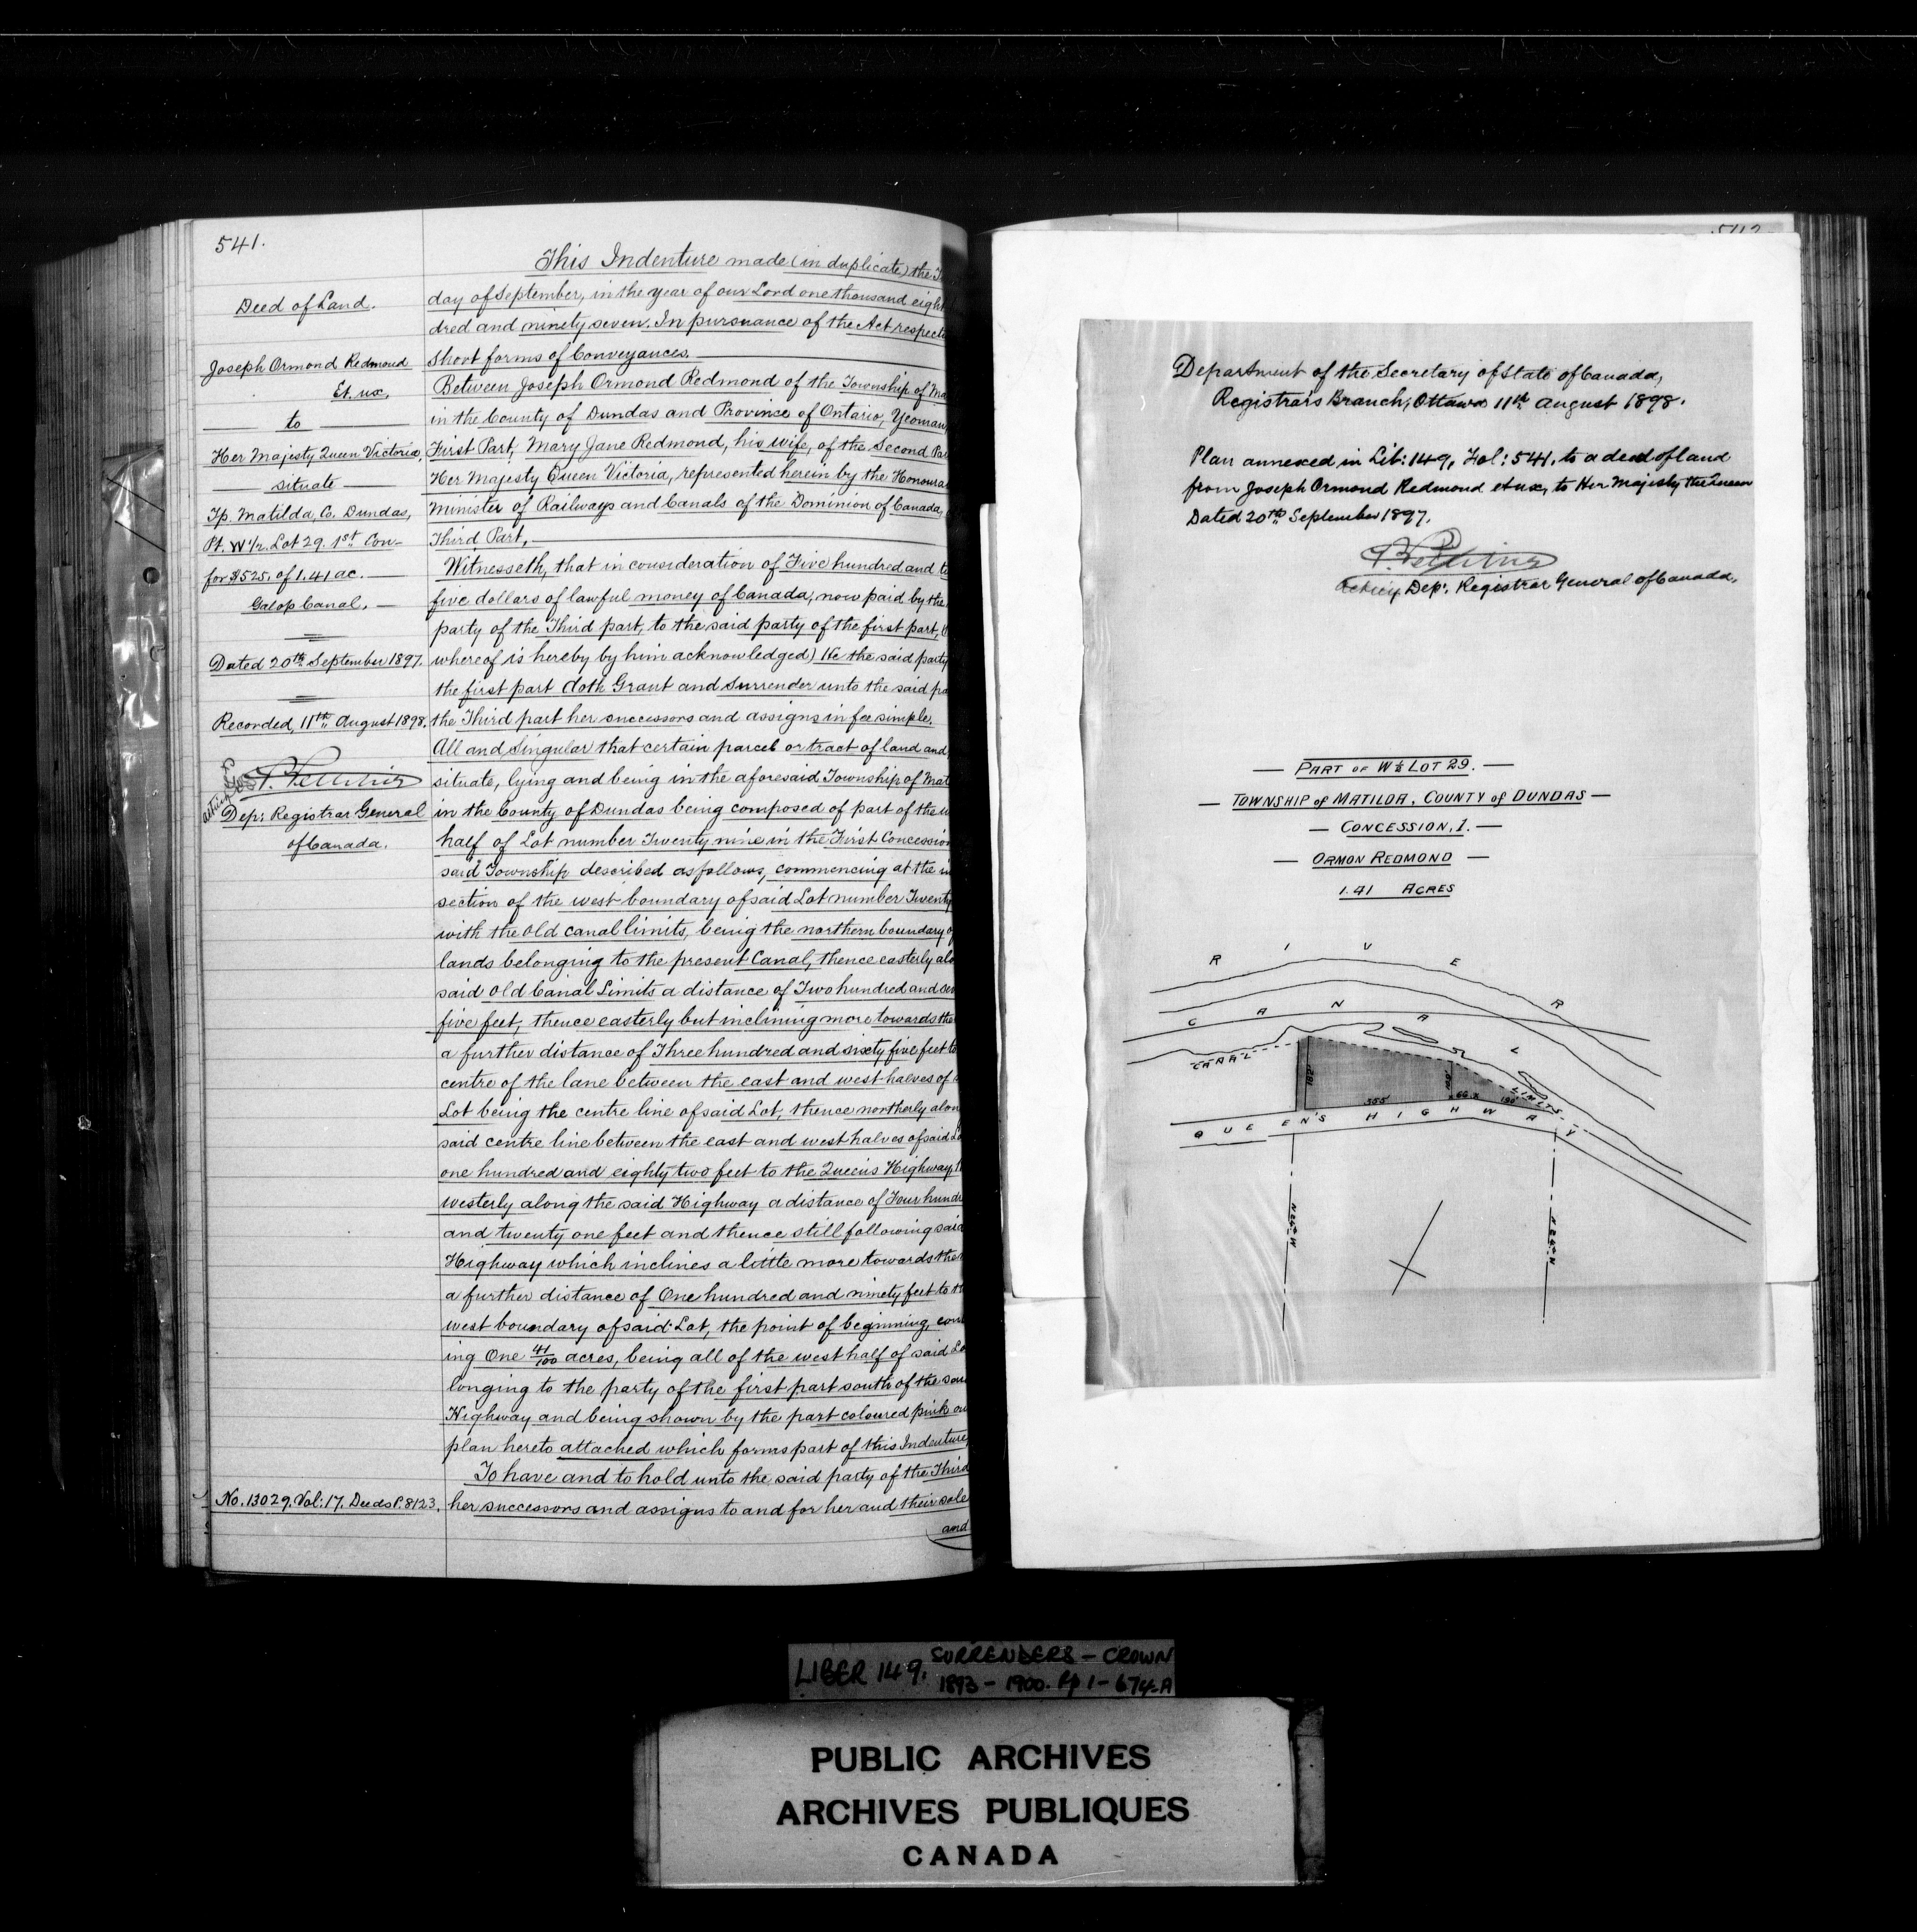 541.
Deed of Land.
Joseph Ormond Redmond
Et. ux,
to
Her Majesty Queen Victoria,
situate
Tp. Matilda, Co. Dundas,
Pt. W 1/2. Lot 29. 1st Con-
for $525. of 1.41 ac.
Galop Canal.
Dated 20th September 1897.
Recorded, 11th August 1898.
P. Pelletier
Acting
Dep: Registrar General
of Canada.
No. 13029. Vol: 17. Deeds P. 8123.
This Indenture made (in duplicate) the
day of September, in the year of our Lord one thousand eight
dred and ninety seven. In pursuance of the Act respecti
Short forms of Conveyances.
Between Joseph Ormond Redmond of the Township of Ma
in the County of Dundas and Province of Ontario, Yeoman,
First Part, Mary Jane Redmond, his wife, of the Second Par
Her Majesty Queen Victoria, represented herein by the Honoura
Minister of Railways and Canals of the Dominion of Canada,
Third Part,
Witnesseth, that in consideration of Five hundred and t
five dollars of lawful money of Canada, now paid by the
party of the Third part, to the said party of the first part,
whereof is hereby by him acknowledged) He the said party
the first part doth Grant and Surrender unto the said pa
the Third part her successors and assigns in fee simple.
All and Singular that certain parcel or tract of land and
situate, lying and being in the aforesaid Township of Mat
in the County of Dundas being composed of part of the w
half of Lot number Twenty nine in the First Concession
said Township described as follows, commencing at the in
section of the west boundary of said Lot number Twenty
with the old canal limits, being the northern boundary o
lands belonging to the present Canal, thence easterly alo
said old Canal Limits a distance of Two hundred and sev
five feet, thence easterly but inclining more towards the
a further distance of Three hundred and sixty five feet to
centre of the lane between the east and west halves of
Lot being the centre line of said Lot, thence northerly alon
said centre line between the east and west halves of said Lo
one hundred and eighty two feet to the Queen's Highway,
westerly along the said Highway a distance of Four hundr
and twenty one feet and thence still following said
Highway which inclines a little more towards the
a further distance of One hundred and ninety feet to th
west boundary of said Lot, the point of beginning, con
ing One 41/100 acres, being all of the west half of said Lo
longing to the party of the first part south of the said
Highway and being shown by the part coloured pink on
plan hereto attached which forms part of this Indenture,
To have and to hold unto the said party of the Third
her successors and assigns to and for her and their sole
and
542
Department of the Secretary of State of Canada,
Registrar's Branch, Ottawa 11th August 1898.
Plan annexed in Lib: 149, Fol: 541, to a deed of land
from Joseph Ormond Redmond et ux, to Her Majesty the Queen
Dated 20th September 1897.
P. Pelletier
Acting Dep: Registrar General of Canada.
PART OF W½ LOT 29.
TOWNSHIP of MATILDA, COUNTY of DUNDAS
CONCESSION, 1.
ORMON REDMOND
1.41 ACRES
RIVER
CANAL
CANAL LIMITS
182'
355'
100'
66
190'
QUEEN'S HIGHWAY
N 24° W
N 24° W
LIBER 149. SURRENDERS - CROWN
1893 - 1900. Pp 1 - 674-A
PUBLIC ARCHIVES
ARCHIVES PUBLIQUES
CANADA